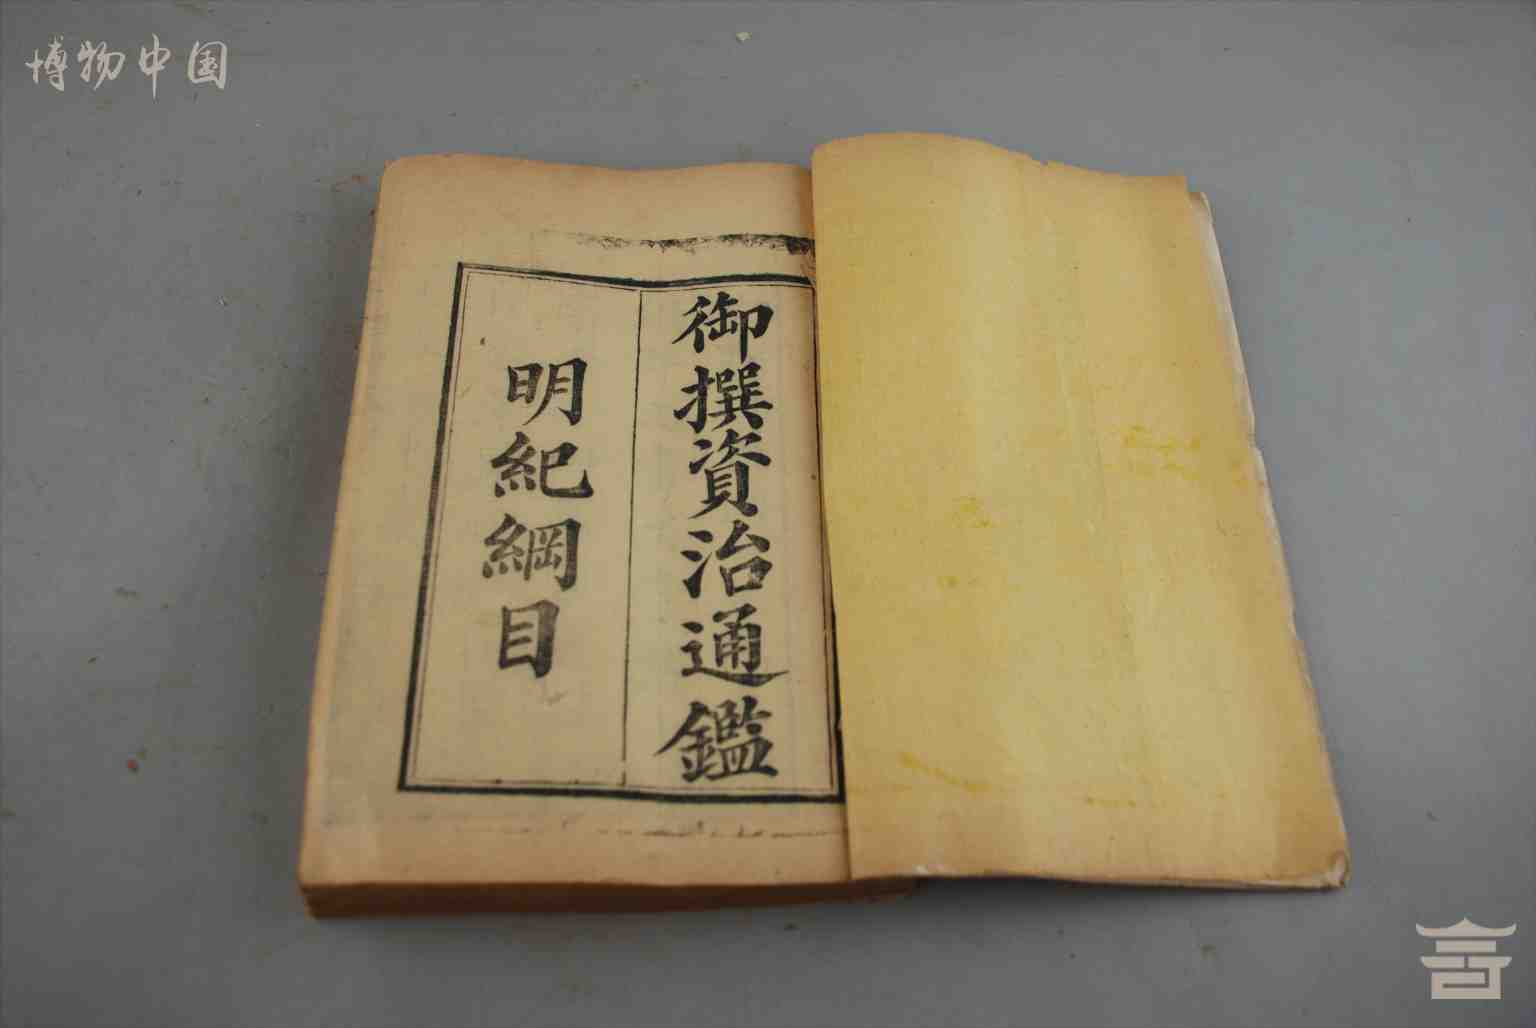 博物中国
御撰資治通鑑
明紀綱目